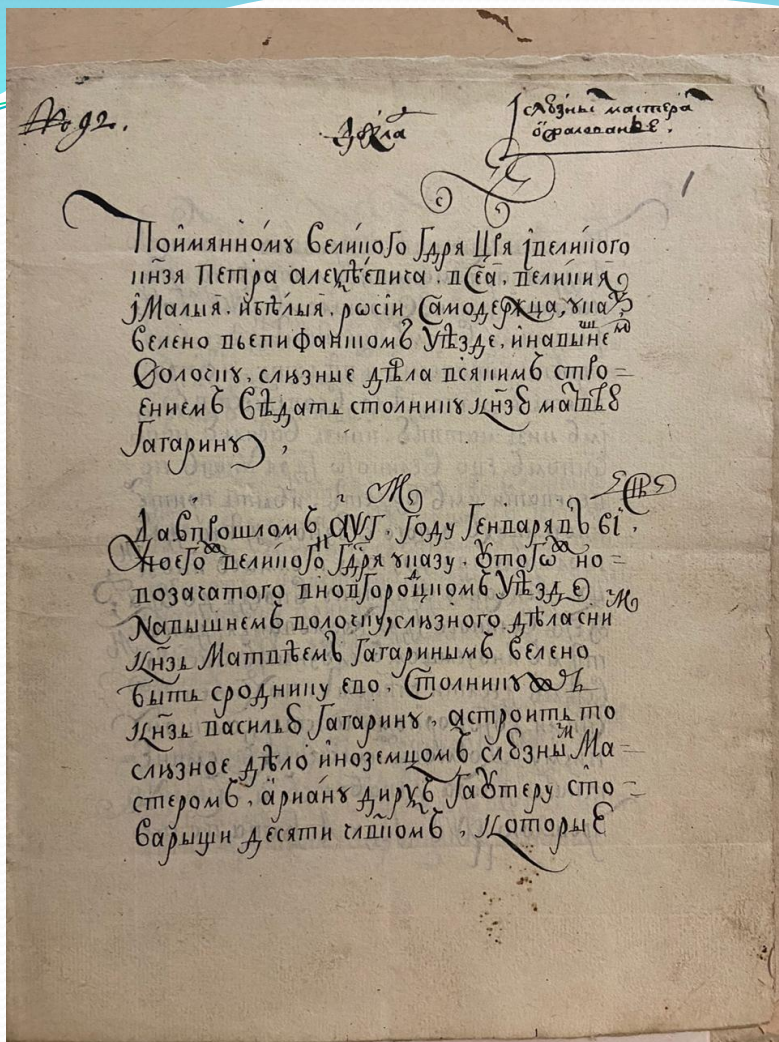 № 92.
Докла д
слюзные мастера
о жалованье.
1
По имянному великого Гдря Цря і великого
кнзя Петра алеѯѣевича, всеа, великия
і Малыя, и бѣлыя, росіи Самодержца, указу,
велено въ епифанском Уѣзде, и на вышнемъ
Волочку, слюзные дѣла всякимъ стро=
ениемъ Вѣдать столнику кнзю матвѣю
Гагарину,
Да в прошломъ ҂аѱг, Году Генваря въ ві,
по его великого Гдря указу, У того но=
возачатого в новгороцкомъ Уѣзде
На вышнемъ волочку, слюзного дѣла с ним
Кнзь Матвѣемъ Гагаринымъ велено
быть сроднику ево, Столнику
Кнзь василью Гагарину, а строить то
слюзное дѣло иноземцомъ слюзным Ма=
стеромъ, ариану дирукъ Гаутеру с то=
варыщи десяти члвкомъ, Которые